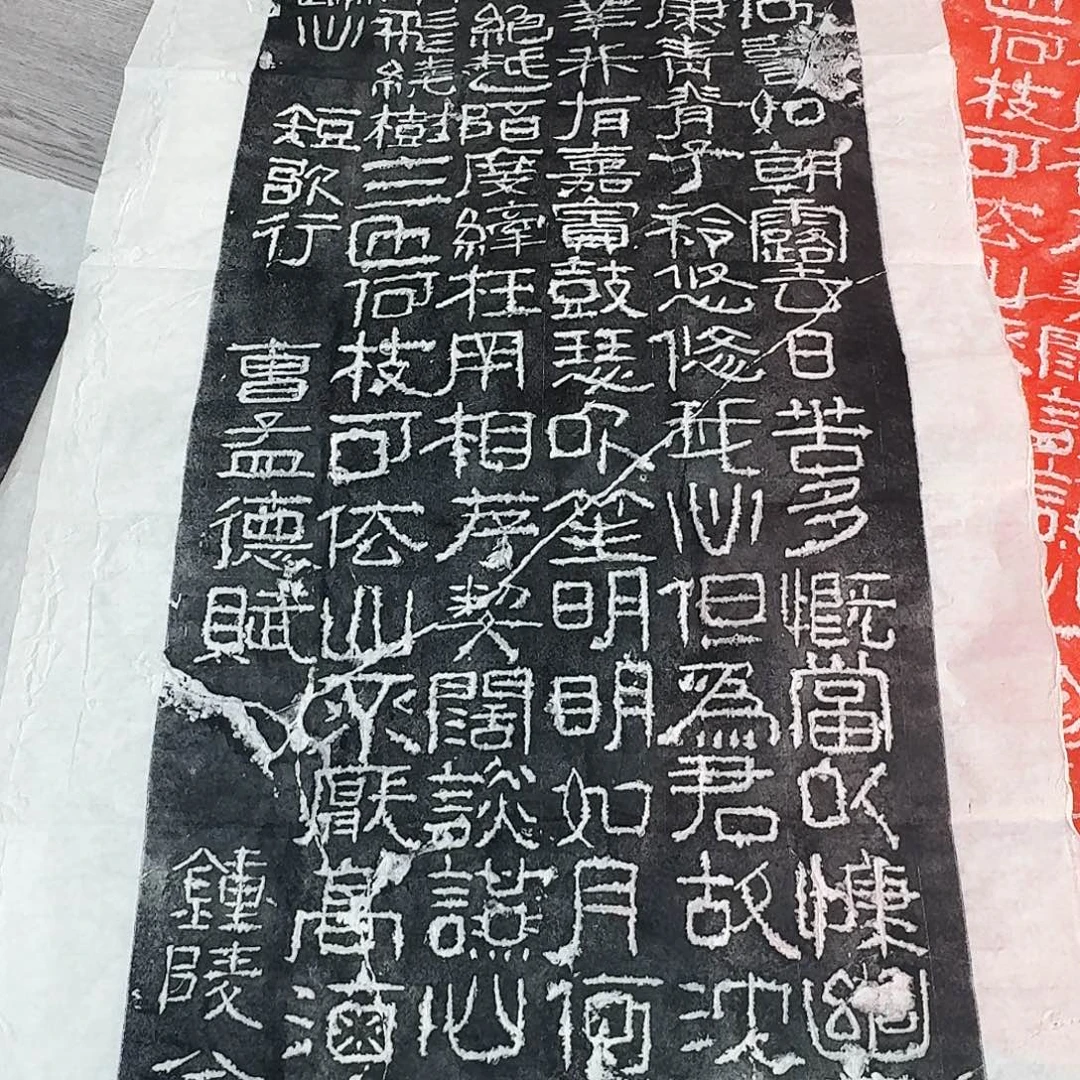 何譬如朝露去日苦多慨當以慷
康青青子衿悠悠我心但為君故沈
苹我有嘉賓鼓瑟吹笙明明如月何
絕越陌度阡枉用相存契闊談讌心
飛繞樹三匝何枝可依山不厭高海
心
短歌行 曹孟德賦
鍾陵
匝何枝可依山